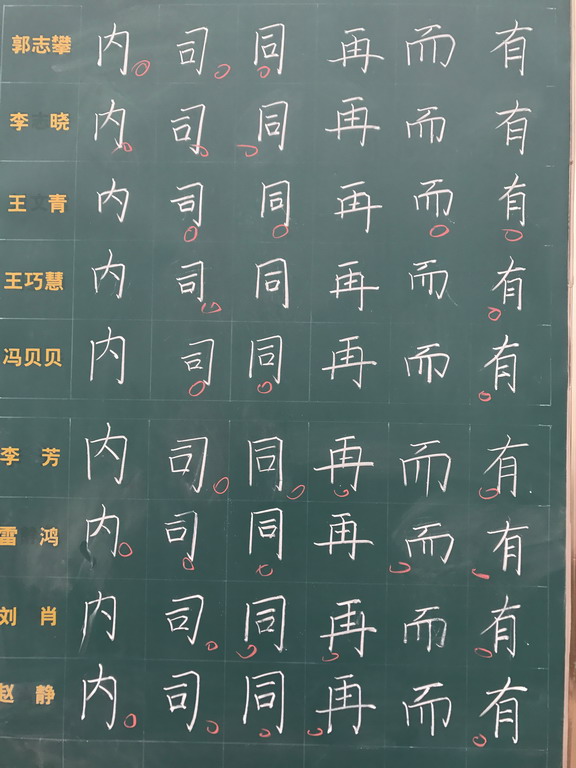 郭志攀 内 司 同 再 而 有
李 晓 内 司 同 再 而 有
王 青 内 司 同 再 而 有
王巧慧 内 司 同 再 而 有
冯贝贝 内 司 同 再 而 有
李 芳 内 司 同 再 而 有
雷 鸿 内 司 同 再 而 有
刘 肖 内 司 同 再 而 有
赵 静 内 司 同 再 而 有